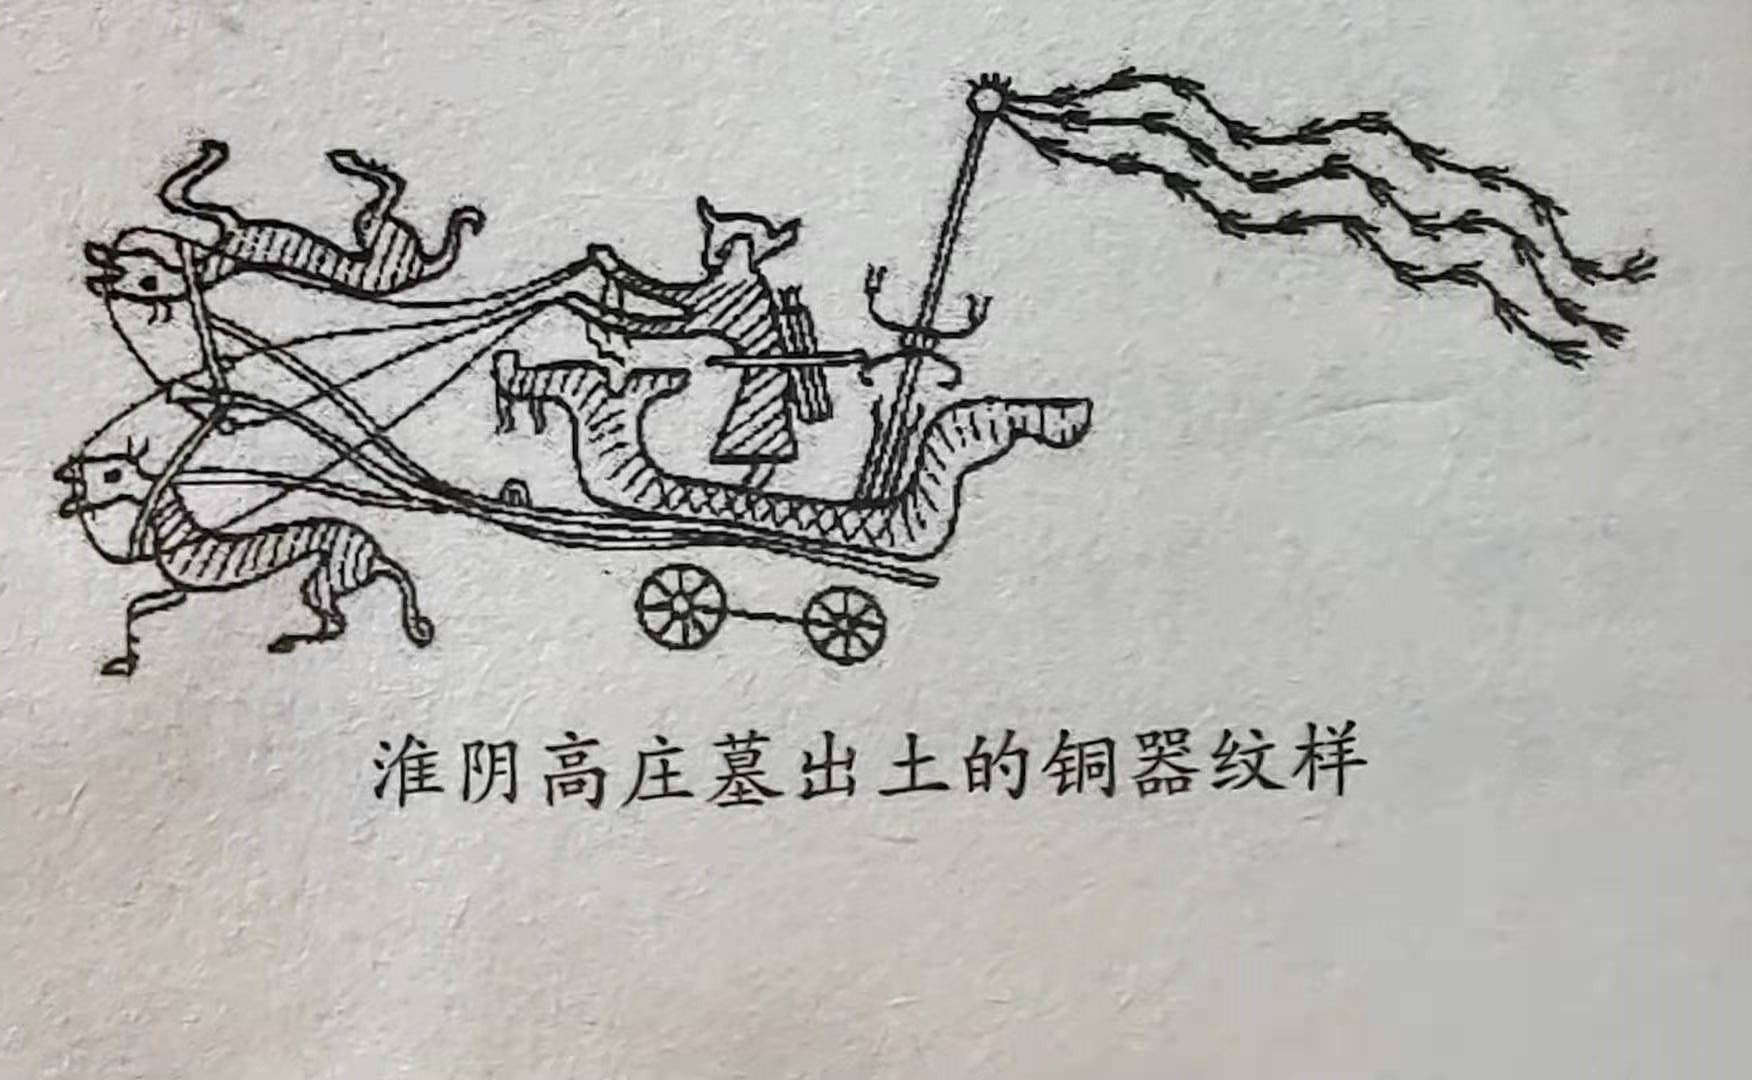 淮阴高庄墓出土的铜器纹样